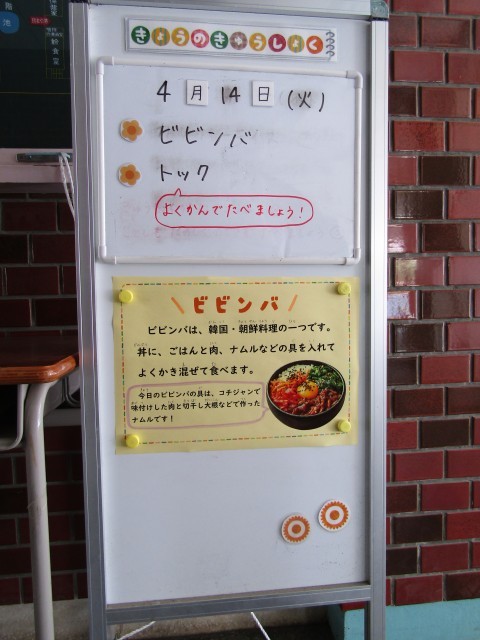 きょうのきゅうしょく
4月14日(火)
ビビンバ
トック
よくかんでたべましょう!
ビビンバ
ビビンバは、韓国・朝鮮料理の一つです。
丼に、ごはんと肉、ナムルなどの具を入れて
よくかき混ぜて食べます。
今日のビビンバの具は、コチジャンで
味付けした肉と切干し大根などで作った
ナムルです!